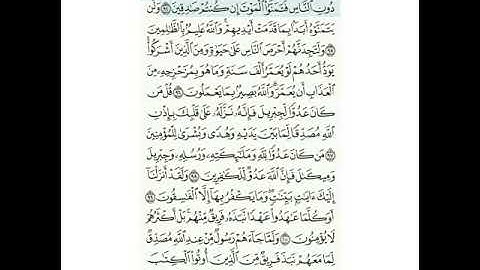 دُونِ ٱلنَّاسِ فَتَمَنَّوُا۟ ٱلْمَوْتَ إِن كُنتُمْ صَٰدِقِينَ ٩٤ وَلَن
يَتَمَنَّوْهُ أَبَدًۢا بِمَا قَدَّمَتْ أَيْدِيهِمْ ۗ وَٱللَّهُ عَلِيمٌۢ بِٱلظَّٰلِمِينَ
٩٥ وَلَتَجِدَنَّهُمْ أَحْرَصَ ٱلنَّاسِ عَلَىٰ حَيَوٰةٍ وَمِنَ ٱلَّذِينَ أَشْرَكُوا۟ ۚ
يَوَدُّ أَحَدُهُمْ لَوْ يُعَمَّرُ أَلْفَ سَنَةٍ وَمَا هُوَ بِمُزَحْزِحِهِۦ مِنَ
ٱلْعَذَابِ أَن يُعَمَّرَ ۗ وَٱللَّهُ بَصِيرٌۢ بِمَا يَعْمَلُونَ ٩٦ قُلْ مَن
كَانَ عَدُوًّا لِّجِبْرِيلَ فَإِنَّهُۥ نَزَّلَهُۥ عَلَىٰ قَلْبِكَ بِإِذْنِ
ٱللَّهِ مُصَدِّقًا لِّمَا بَيْنَ يَدَيْهِ وَهُدًى وَبُشْرَىٰ لِلْمُؤْمِنِينَ
٩٧ مَن كَانَ عَدُوًّا لِّلَّهِ وَمَلَٰٓئِكَتِهِۦ وَرُسُلِهِۦ وَجِبْرِيلَ
وَمِيكَىٰلَ فَإِنَّ ٱللَّهَ عَدُوٌّ لِّلْكَٰفِرِينَ ٩٨ وَلَقَدْ أَنزَلْنَآ
إِلَيْكَ ءَايَٰتٍۭ بَيِّنَٰتٍ ۖ وَمَا يَكْفُرُ بِهَآ إِلَّا ٱلْفَٰسِقُونَ ٩٩
أَوَكُلَّمَا عَٰهَدُوا۟ عَهْدًا نَّبَذَهُۥ فَرِيقٌ مِّنْهُم ۚ بَلْ أَكْثَرُهُمْ
لَا يُؤْمِنُونَ ١٠٠ وَلَمَّا جَآءَهُمْ رَسُولٌ مِّنْ عِندِ ٱللَّهِ مُصَدِّقٌ
لِّمَا مَعَهُمْ نَبَذَ فَرِيقٌ مِّنَ ٱلَّذِينَ أُوتُوا۟ ٱلْكِتَٰبَ